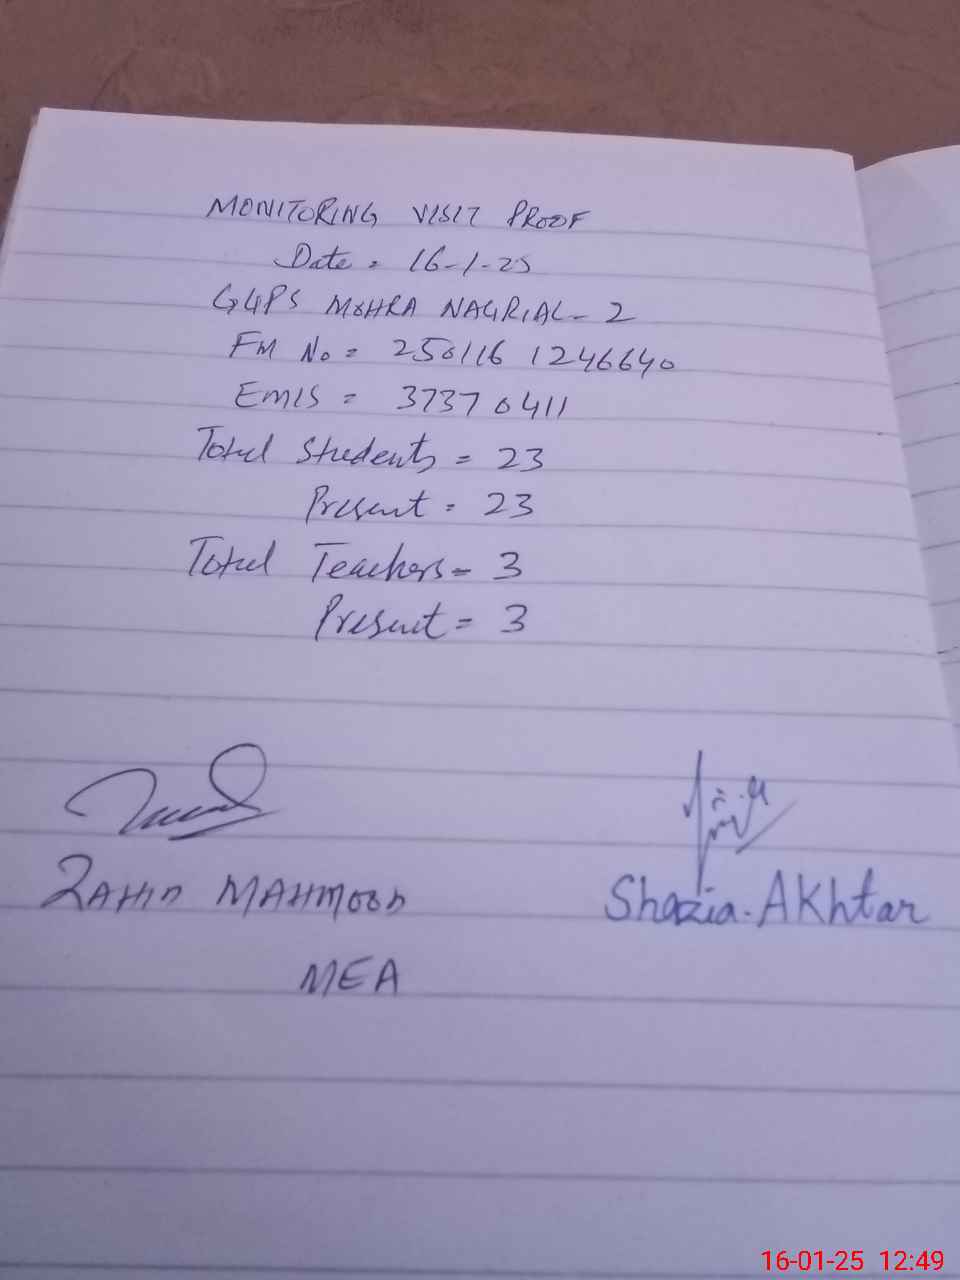 MONITORING VISIT PROOF
Date = 16-1-25
GGPS MOHRA NAGRIAL-2
FM No = 250116 1246640
EMIS = 37370411
Total Students = 23
Present = 23
Total Teachers = 3
Present = 3
ZAHID MAHMOOD
Shazia.Akhtar
MEA
16-01-25 12:49